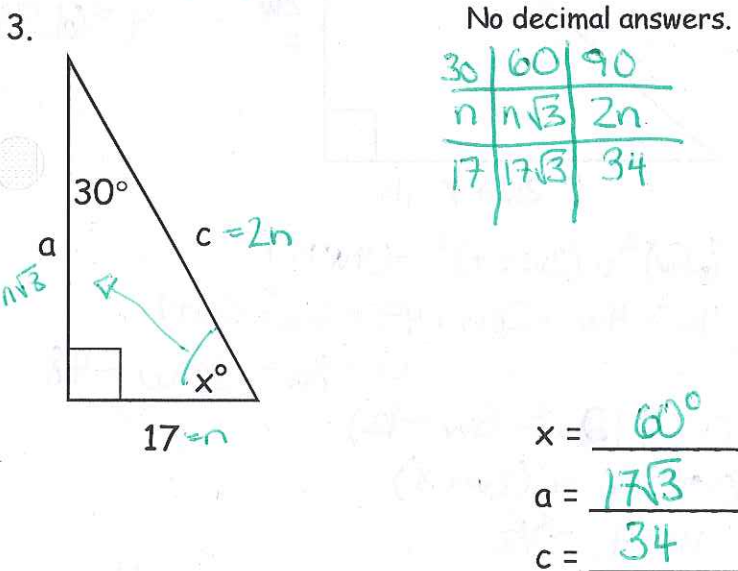 3.
No decimal answers.
30 60 90
n n√3 2n
17 17√3 34
30°
a
n√3
c = 2n
x°
17 = n
x = 60°
a = 17√3
c = 34